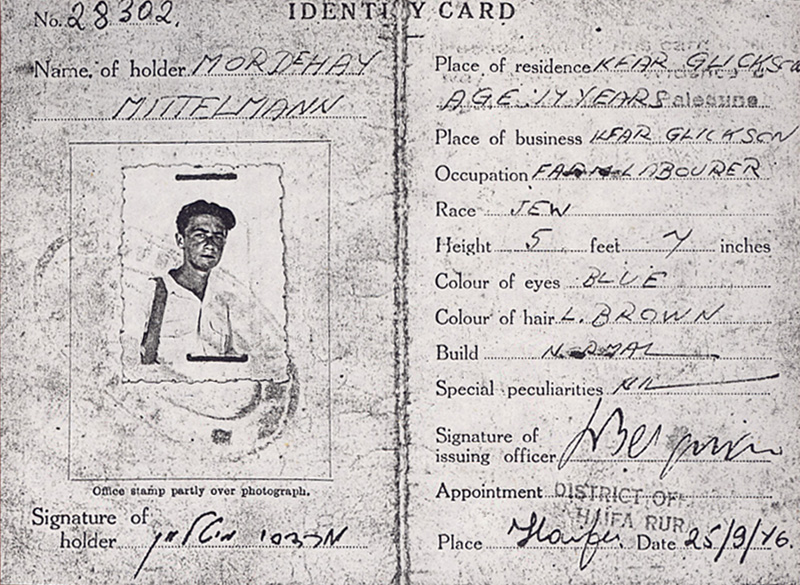 IDENTITY CARD
No. 28302.
Name of holder MORDEHAY
MITTELMANN
Office stamp partly over photograph.
Signature of
holder
Place of residence KFAR GLICKSON
AGE: 17 YEARS Palestine
Place of business KFAR GLICKSON
Occupation FARM LABOURER
Race JEW
Height 5 feet 7 inches
Colour of eyes BLUE
Colour of hair L. BROWN
Build NORMAL
Special peculiarities NIL
Signature of
issuing officer
Appointment DISTRICT OF
HAIFA RUR
Place Haifa Date 25/9/46.